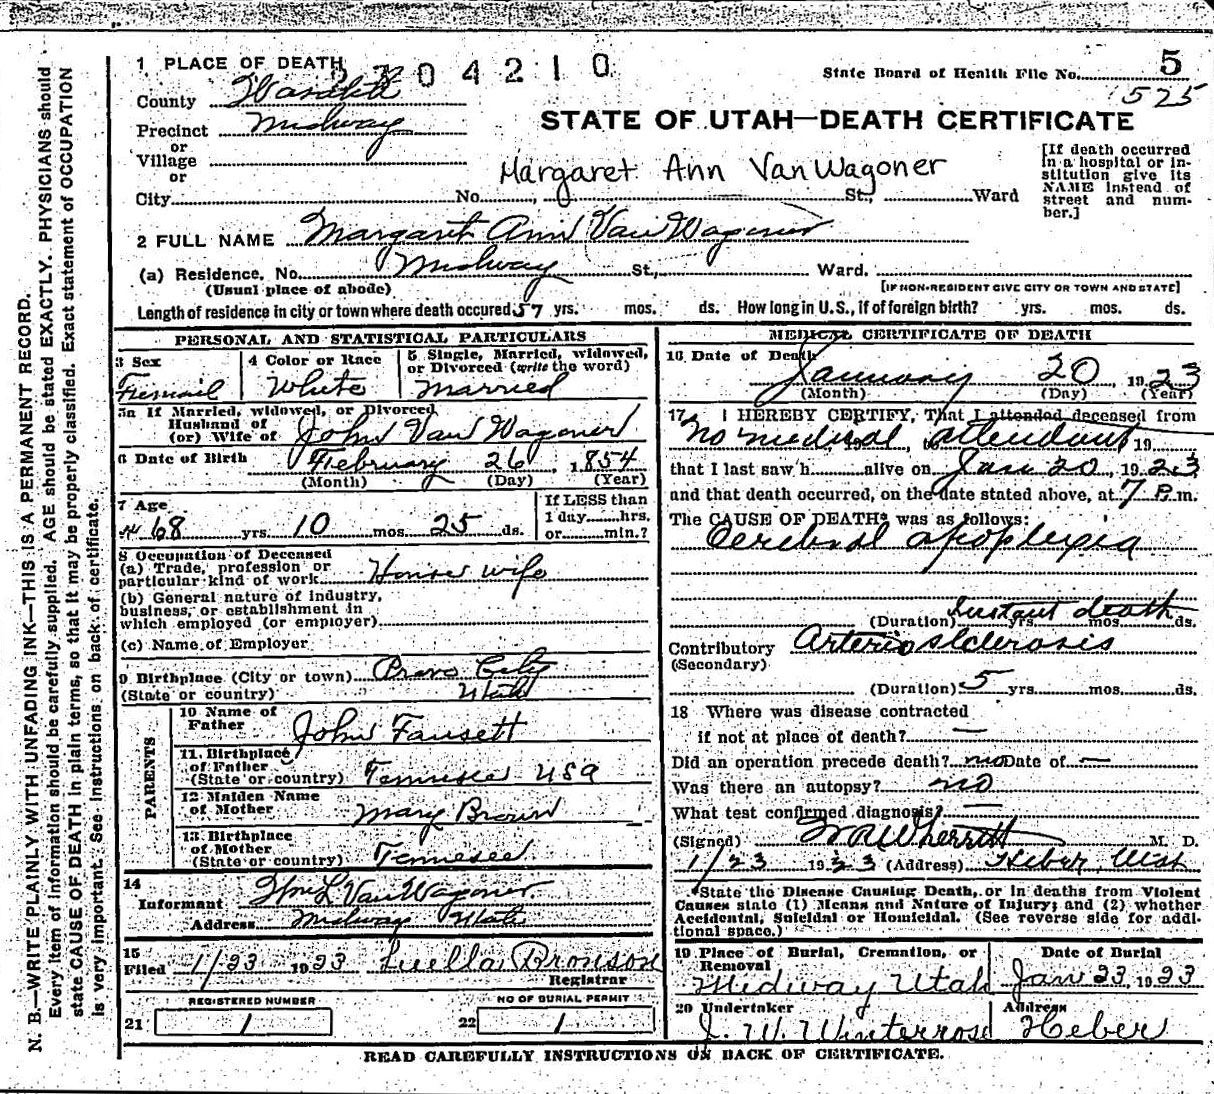 1 PLACE OF DEATH
04210
State Board of Health File No. 5
525
County Wasatch
Precinct Midway
or
Village
or
City No. St., Ward
STATE OF UTAH—DEATH CERTIFICATE
Margaret Ann VanWagoner
[If death occurred
in a hospital or in-
stitution give its
NAME instead of
street and num-
ber.]
2 FULL NAME Margaret Ann Van Wagoner
(a) Residence. No. Midway St., Ward.
(Usual place of abode)
[IF NON-RESIDENT GIVE CITY OR TOWN AND STATE]
Length of residence in city or town where death occured 57 yrs. mos. ds. How long in U.S., if of foreign birth? yrs. mos. ds.
PERSONAL AND STATISTICAL PARTICULARS
3 Sex
Femail
4 Color or Race
White
5 Single, Married, widowed,
or Divorced (write the word)
Married
5a If Married, widowed, or Divorced
Husband of
(or) Wife of John Van Wagoner
6 Date of Birth February 26, 1854
(Month) (Day) (Year)
7 Age
68 yrs. 10 mos. 25 ds.
If LESS than
1 day......hrs.
or......min.?
8 Occupation of Deceased
(a) Trade, profession or
particular kind of work House wife
(b) General nature of industry,
business, or establishment in
which employed (or employer)
(c) Name of Employer
9 Birthplace (City or town) Provo City
(State or country) Utah
PARENTS
10 Name of
Father John Fausett
11 Birthplace
of Father
(State or country) Tennesee USA
12 Maiden Name
of Mother Mary Brown
13 Birthplace
of Mother
(State or country) Tennesee
14
Informant Wm L VanWagoner
Address Midway Utah
15
Filed 1/23 1923 Luella Bronson
Registrar
REGISTERED NUMBER
21 1
NO OF BURIAL PERMIT
22 1
MEDICAL CERTIFICATE OF DEATH
16 Date of Death
January 20, 1923
(Month) (Day) (Year)
17 I HEREBY CERTIFY, That I attended deceased from
no medical, 19 , to attendant, 19
that I last saw h......alive on Jan 20, 1923
and that death occurred, on the date stated above, at 7 P.m.
The CAUSE OF DEATH* was as follows:
Cerebral apoplexia
Instant death
(Duration) yrs. mos. ds.
Contributory Arterio sclerosis
(Secondary)
(Duration) 5 yrs. mos. ds.
18 Where was disease contracted
if not at place of death? —
Did an operation precede death? no Date of —
Was there an autopsy? no
What test confirmed diagnosis? —
(Signed) Wherritt M. D.
1/23 1923 (Address) Heber, Utah
*State the Disease Causing Death, or in deaths from Violent
Causes state (1) Means and Nature of Injury; and (2) whether
Accidental, Suicidal or Homicidal. (See reverse side for addi-
tional space.)
19 Place of Burial, Cremation, or
Removal
Midway Utah
Date of Burial
Jan 23, 1923
20 Undertaker
J. W. Winterrose
Address
Heber
READ CAREFULLY INSTRUCTIONS ON BACK OF CERTIFICATE.
N. B.—WRITE PLAINLY WITH UNFADING INK—THIS IS A PERMANENT RECORD.
Every item of information should be carefully supplied. AGE should be stated EXACTLY. PHYSICIANS should
state CAUSE OF DEATH in plain terms, so that it may be properly classified. Exact statement of OCCUPATION
is very important. See instructions on back of certificate.